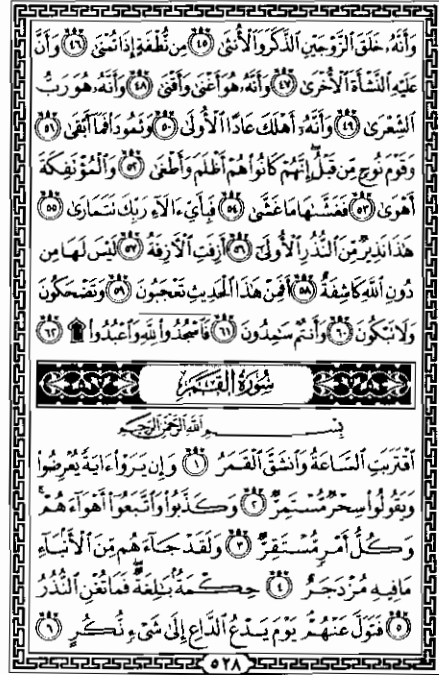 وَأَنَّهُۥ خَلَقَ ٱلزَّوْجَيْنِ ٱلذَّكَرَ وَٱلْأُنثَىٰ ٤٥ مِن نُّطْفَةٍ إِذَا تُمْنَىٰ ٤٦ وَأَنَّ
عَلَيْهِ ٱلنَّشْأَةَ ٱلْأُخْرَىٰ ٤٧ وَأَنَّهُۥ هُوَ أَغْنَىٰ وَأَقْنَىٰ ٤٨ وَأَنَّهُۥ هُوَ رَبُّ
ٱلشِّعْرَىٰ ٤٩ وَأَنَّهُۥٓ أَهْلَكَ عَادًا ٱلْأُولَىٰ ٥٠ وَثَمُودَا۟ فَمَآ أَبْقَىٰ ٥١
وَقَوْمَ نُوحٍ مِّن قَبْلُ إِنَّهُمْ كَانُوا۟ هُمْ أَظْلَمَ وَأَطْغَىٰ ٥٢ وَٱلْمُؤْتَفِكَةَ
أَهْوَىٰ ٥٣ فَغَشَّىٰهَا مَا غَشَّىٰ ٥٤ فَبِأَىِّ ءَالَآءِ رَبِّكَ تَتَمَارَىٰ ٥٥
هَٰذَا نَذِيرٌ مِّنَ ٱلنُّذُرِ ٱلْأُولَىٰٓ ٥٦ أَزِفَتِ ٱلْءَازِفَةُ ٥٧ لَيْسَ لَهَا مِن
دُونِ ٱللَّهِ كَاشِفَةٌ ٥٨ أَفَمِنْ هَٰذَا ٱلْحَدِيثِ تَعْجَبُونَ ٥٩ وَتَضْحَكُونَ
وَلَا تَبْكُونَ ٦٠ وَأَنتُمْ سَٰمِدُونَ ٦١ فَٱسْجُدُوا۟ لِلَّهِ وَٱعْبُدُوا۟ ۩ ٦٢
سُورَةُ القَمَرِ
بِسْمِ ٱللَّهِ ٱلرَّحْمَٰنِ ٱلرَّحِيمِ
ٱقْتَرَبَتِ ٱلسَّاعَةُ وَٱنشَقَّ ٱلْقَمَرُ ١ وَإِن يَرَوْا۟ ءَايَةً يُعْرِضُوا۟
وَيَقُولُوا۟ سِحْرٌ مُّسْتَمِرٌّ ٢ وَكَذَّبُوا۟ وَٱتَّبَعُوٓا۟ أَهْوَآءَهُمْ ۚ
وَكُلُّ أَمْرٍ مُّسْتَقِرٌّ ٣ وَلَقَدْ جَآءَهُم مِّنَ ٱلْأَنۢبَآءِ
مَا فِيهِ مُزْدَجَرٌ ٤ حِكْمَةٌۢ بَٰلِغَةٌ ۖ فَمَا تُغْنِ ٱلنُّذُرُ
٥ فَتَوَلَّ عَنْهُمْ ۘ يَوْمَ يَدْعُ ٱلدَّاعِ إِلَىٰ شَىْءٍ نُّكُرٍ ٦
٥٢٨